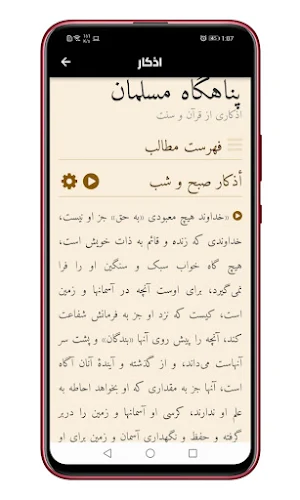 1:07
اذکار
پناهگاه مسلمان
اذکاری از قرآن و سنت
فهرست مطالب
أذکار صبح و شب
«خداوند هیچ معبودی «به حق» جز او نیست،
خداوندی که زنده و قائم به ذات خویش است،
هیچ گاه خواب سبک و سنگین او را فرا
نمی‌گیرد، برای اوست آنچه در آسمانها و زمین
است، کیست که نزد او جز به فرمانش شفاعت
کند، آنچه را پیش روی آنها «بندگان» و پشت سر
آنهاست می‌داند، و از گذشته و آیندهٔ آنان آگاه
است، آنها جز به مقداری که او بخواهد احاطه به
علم او ندارند، کرسی او آسمانها و زمین را دربر
گرفته و حفظ و نگهداری آسمان و زمین برای او